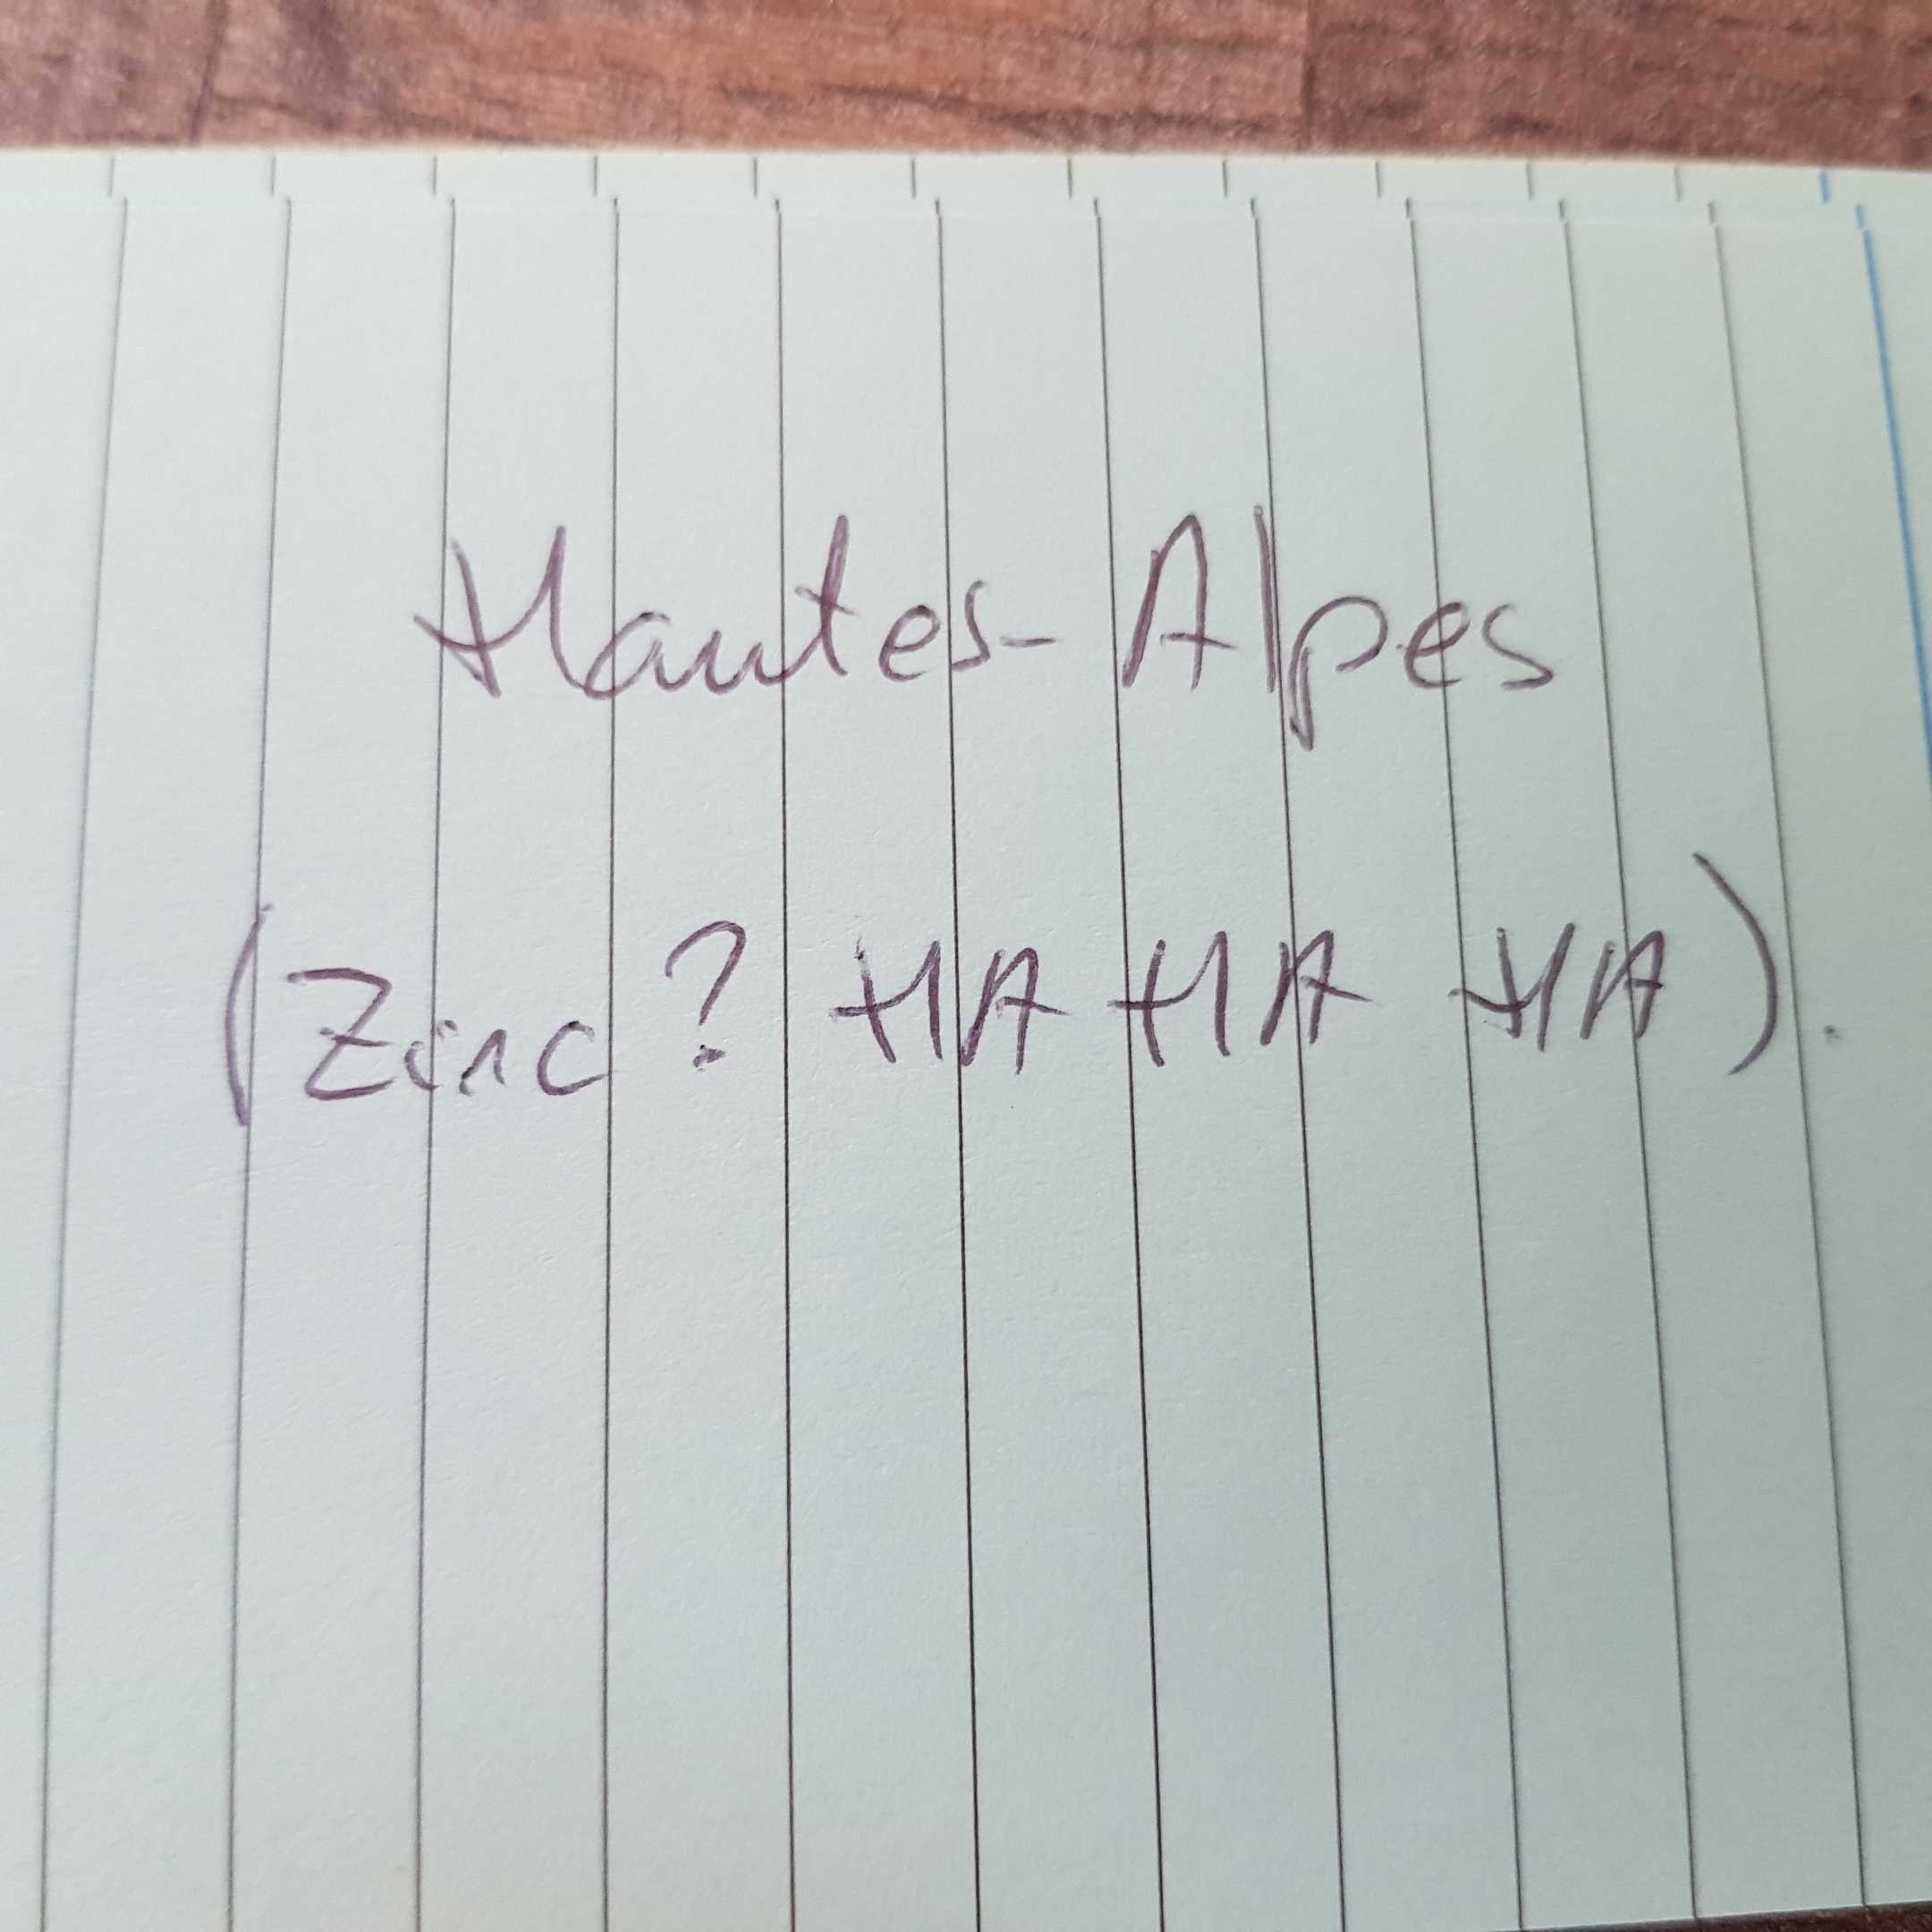 Hautes-Alpes
(Zinc? HA HA HA).